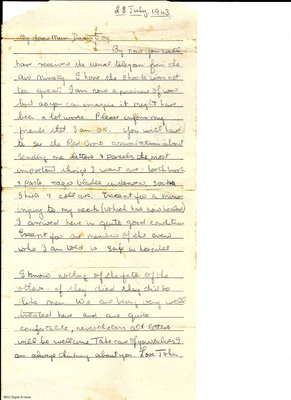 28 July, 1943
My dear Mum Dad & Joy
By now you will
have received the usual telegram from the
Air Ministry. I hope the shock was not
too great. I am now a prisoner of war
but as you can imagine it might have
been a lot worse. Please inform my
friends that I am OK. You will have
to see the Red Cross organisation about
sending me letters & parcels, the most
important things I want are - toothbrush
& paste, razor blades underwear, socks
Shirts & collars. Except for a minor
injury to my neck (which has now healed)
I arrived here in quite good condition
Except for one member of the crew
who I am told is safe in hospital
I know nothing of the fate of the
others - if they died they did so
like men. We are being very well
treated here and are quite
comfortable, nevertheless all letters
will be welcome Take care of yourselves I
am always thinking about you. Love John.
IBCC Digital Archive